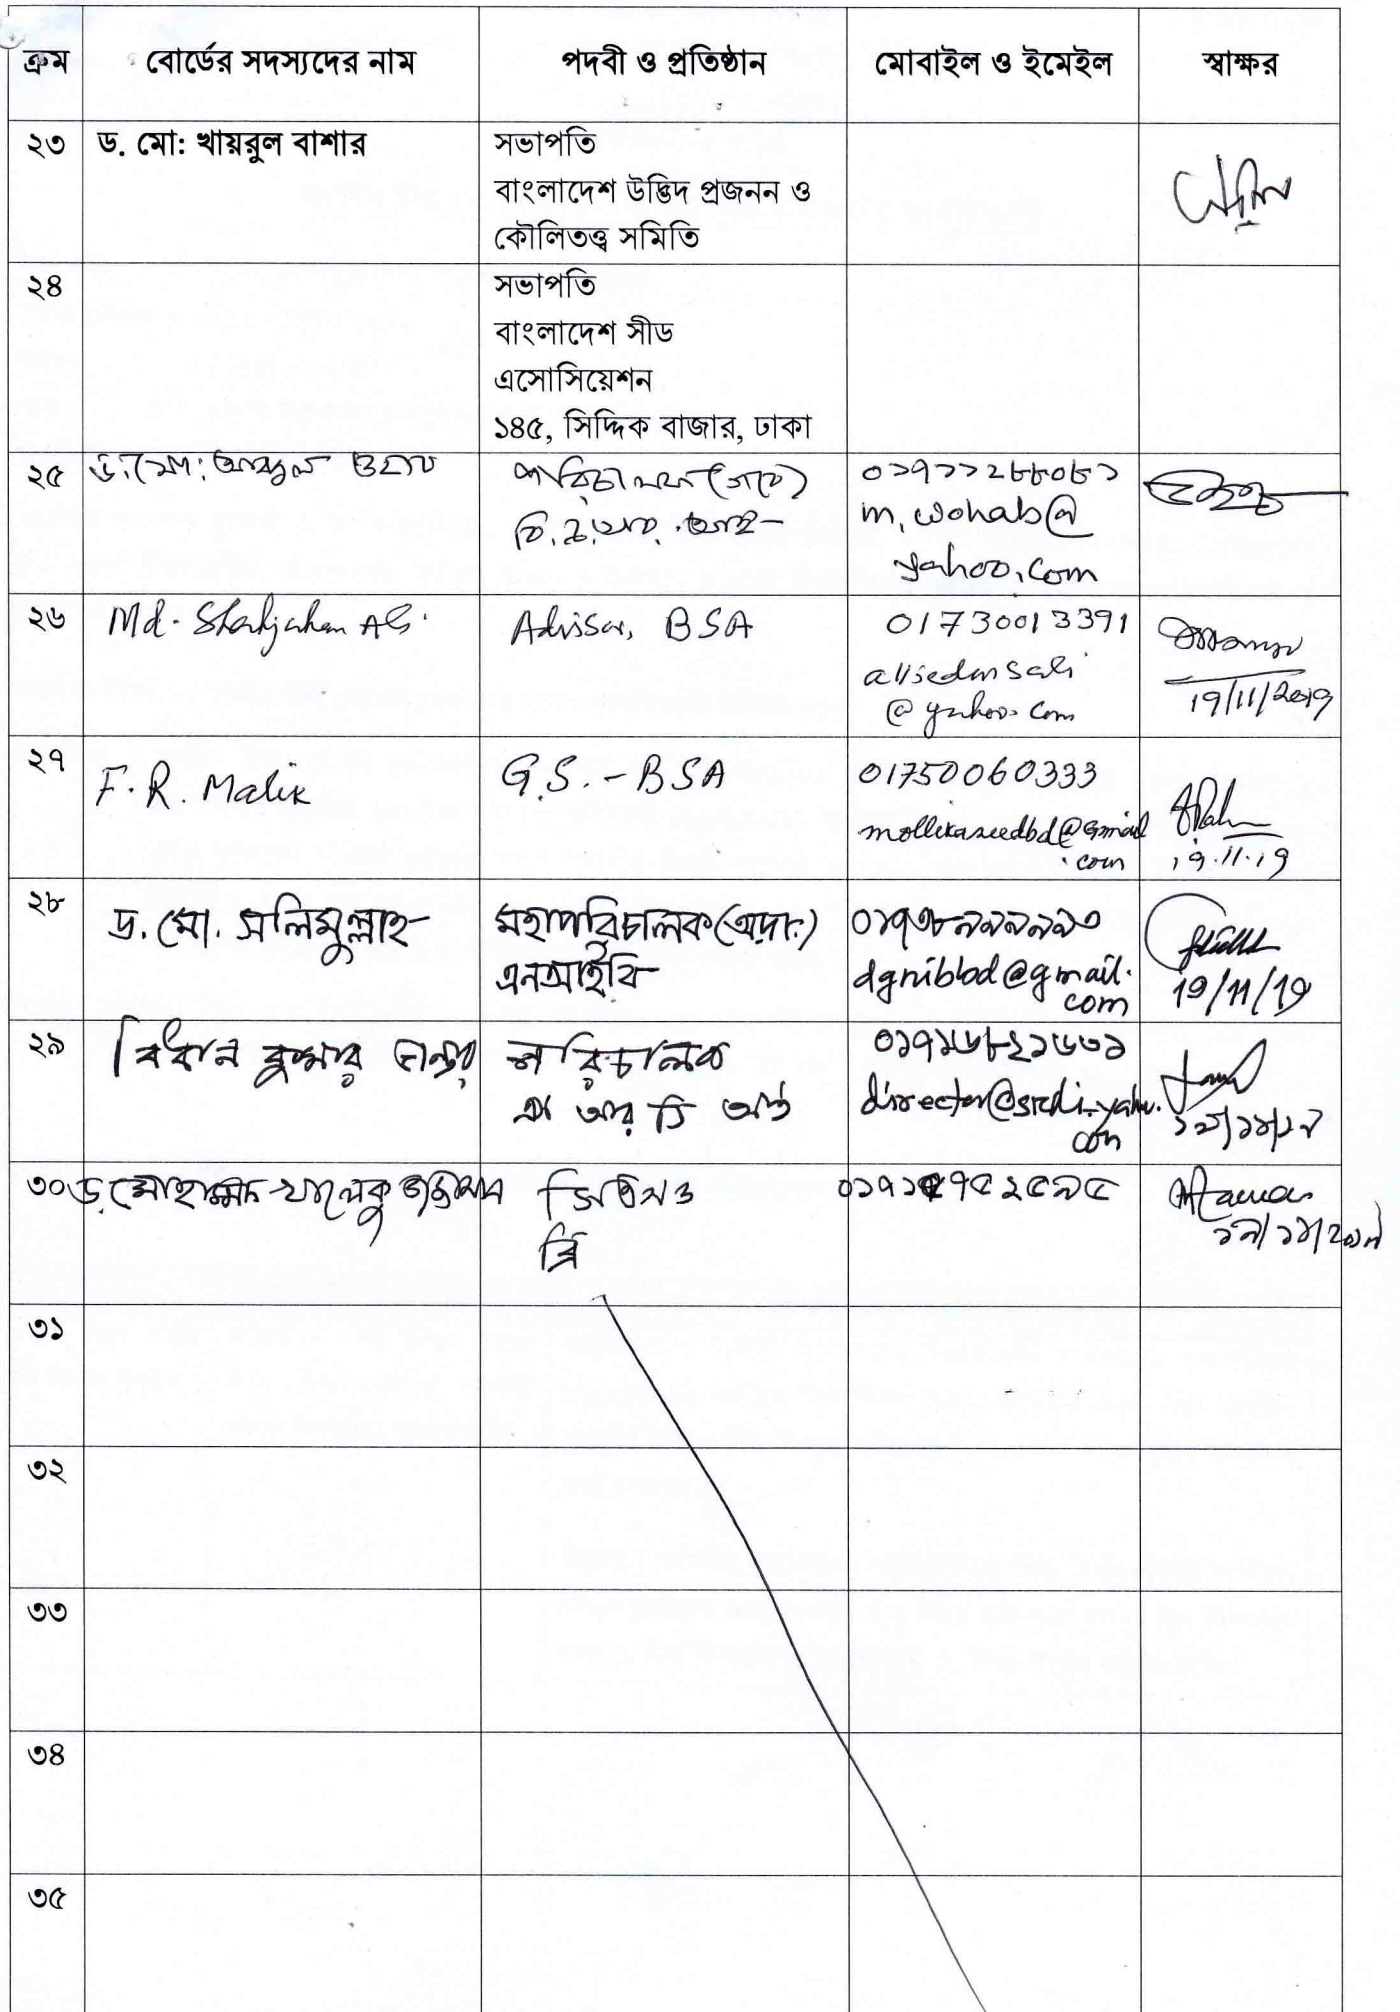 ক্রম বোর্ডের সদস্যদের নাম পদবী ও প্রতিষ্ঠান মোবাইল ও ইমেইল স্বাক্ষর
২৩ ড. মো: খায়রুল বাশার সভাপতি
বাংলাদেশ উদ্ভিদ প্রজনন ও
কৌলিতত্ত্ব সমিতি
২৪ সভাপতি
বাংলাদেশ সীড
এসোসিয়েশন
১৪৫, সিদ্দিক বাজার, ঢাকা
২৫ ড. মো: আব্দুল ওহাব পরিচালক (গবে)
m.wohab@
yahoo.com
২৬ Md. Shahjahan Ali Advisor, BSA 01730013391
@yahoo.com
19/11/2019
২৭ F. R. Malik G.S. - BSA 01750060333
mollikaseedbd@gmail
.com 19.11.19
২৮ ড. মো. সলিমুল্লাহ মহাপরিচালক (অ:দা:) ০১৭৩৮৯৯৯৯৯৩
এনআইবি dgnibbd@gmail.
com 19/11/19
২৯ বিধান কুমার ভান্ডার পরিচালক ০১৭১৬৮২১৬৩১
এস আর ডি আই director@srdi.yahoo.
com ১৯/১১/১৯
৩০ ড. মোহাম্মদ খালেকুজ্জামান সিএসও
ব্রি ১৯/১১/২০১৯
৩১
৩২
৩৩
৩৪
৩৫